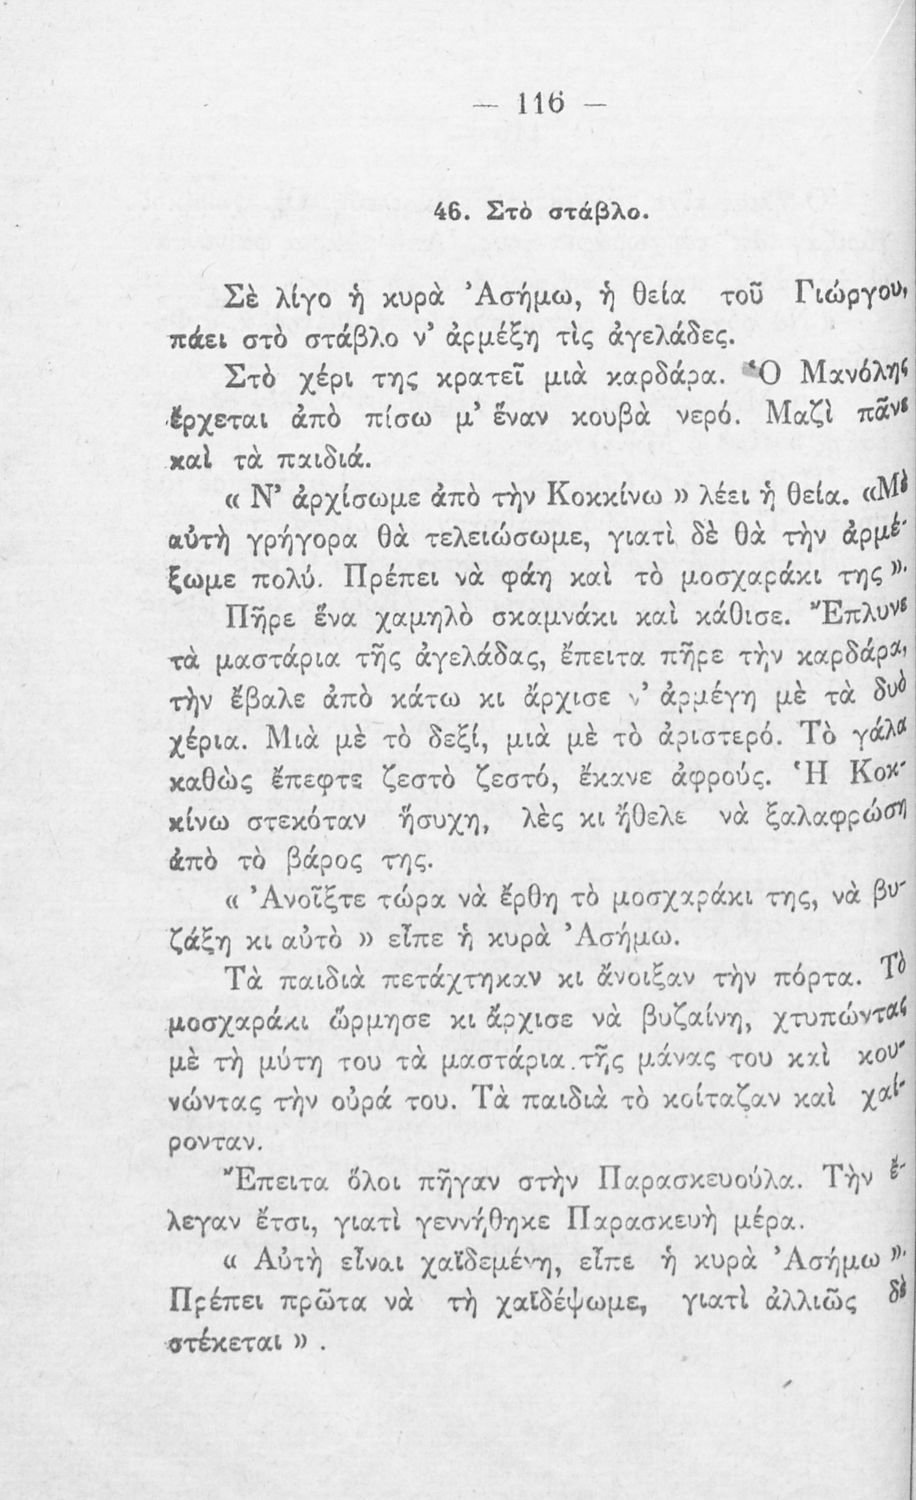 — 116 —
46. Στὸ στάβλο.
Σὲ λίγο ἡ κυρὰ Ἀσήμω, ἡ θεία τοῦ Γιώργου,
πάει στὸ στάβλο ν’ ἀρμέξη τὶς ἀγελάδες.
Στὸ χέρι της κρατεῖ μιὰ καρδάρα. Ὁ Μανόλης
ἔρχεται ἀπὸ πίσω μ’ ἕναν κουβὰ νερό. Μαζὶ πᾶνε
καὶ τὰ παιδιά.
« Ν’ ἀρχίσωμε ἀπὸ τὴν Κοκκίνω » λέει ἡ θεία. «Μὲ
αὐτὴ γρήγορα θὰ τελειώσωμε, γιατὶ δὲ θὰ τὴν ἀρμέ-
ξωμε πολύ. Πρέπει νὰ φάη καὶ τὸ μοσχαράκι της ».
Πῆρε ἕνα χαμηλὸ σκαμνάκι καὶ κάθισε. Ἔπλυνε
τὰ μαστάρια τῆς ἀγελάδας, ἔπειτα πῆρε τὴν καρδάρα,
τὴν ἔβαλε ἀπὸ κάτω κι ἄρχισε ν’ ἀρμέγη μὲ τὰ δυὸ
χέρια. Μιὰ μὲ τὸ δεξί, μιὰ μὲ τὸ ἀριστερό. Τὸ γάλα
καθὼς ἔπεφτε ζεστὸ ζεστό, ἔκανε ἀφρούς. Ἡ Κοκ-
κίνω στεκόταν ἥσυχη, λὲς κι ἤθελε νὰ ξαλαφρώση
ἀπὸ τὸ βάρος της.
« Ἀνοῖξτε τώρα νὰ ἔρθη τὸ μοσχαράκι της, νὰ βυ-
ζάξη κι αὐτὸ » εἶπε ἡ κυρὰ Ἀσήμω.
Τὰ παιδιὰ πετάχτηκαν κι ἄνοιξαν τὴν πόρτα. Τὸ
μοσχαράκι ὥρμησε κι ἄρχισε νὰ βυζαίνη, χτυπώντας
μὲ τὴ μύτη του τὰ μαστάρια τῆς μάνας του καὶ κου-
νώντας τὴν οὐρά του. Τὰ παιδιὰ τὸ κοίταζαν καὶ χαί-
ρονταν.
Ἔπειτα ὅλοι πῆγαν στὴν Παρασκευούλα. Τὴν ἔ-
λεγαν ἔτσι, γιατὶ γεννήθηκε Παρασκευὴ μέρα.
« Αὐτὴ εἶναι χαϊδεμένη, εἶπε ἡ κυρὰ Ἀσήμω ».
Πρέπει πρῶτα νὰ τὴ χαϊδέψωμε, γιατὶ ἀλλιῶς δὲ
στέκεται » .